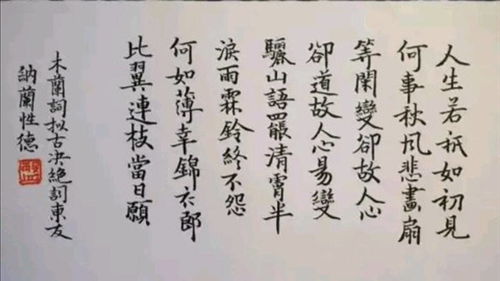 人生若祇如初見
何事秋風悲畫扇
等閑變卻故人心
卻道故人心易變
驪山語罷清霄半
淚雨霖鈴終不怨
何如薄幸錦衣郎
比翼連枝當日願
木蘭詞拟古決絕詞柬友
納蘭性德